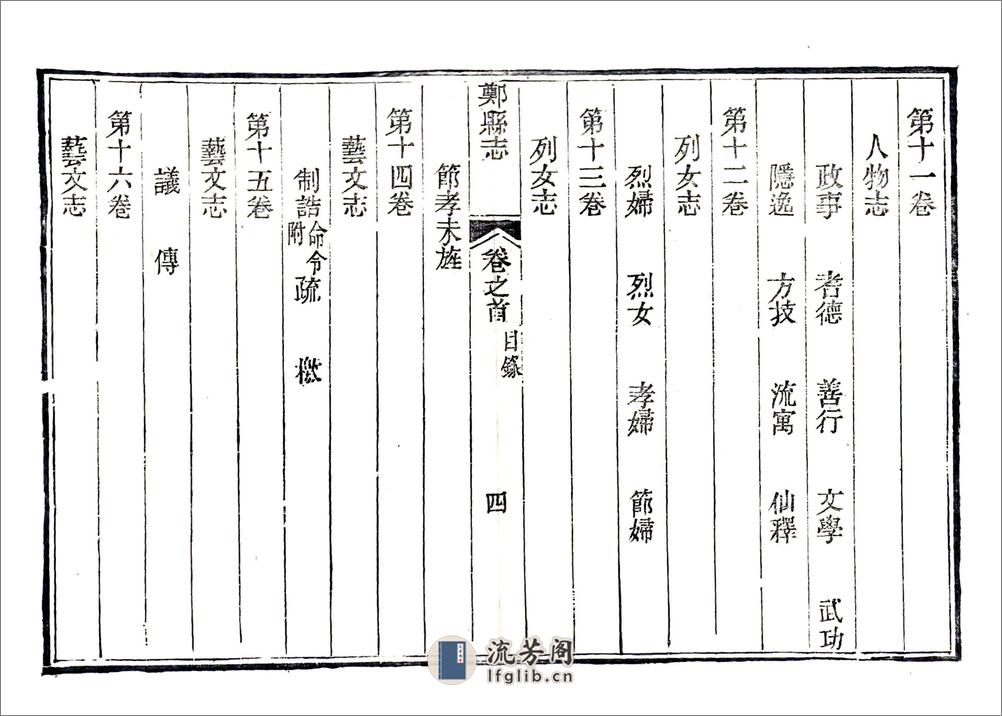 第十一卷
人物志
政事 耆德 善行 文學 武功
隱逸 方技 流寓 仙釋
第十二卷
列女志
烈婦 烈女 孝婦 節婦
第十三卷
列女志
鄭縣志 卷之首 目錄 四
節孝未旌
第十四卷
藝文志
制誥命令附 疏 檄
第十五卷
藝文志
議 傳
第十六卷
藝文志
流芳阁
lfglib.cn